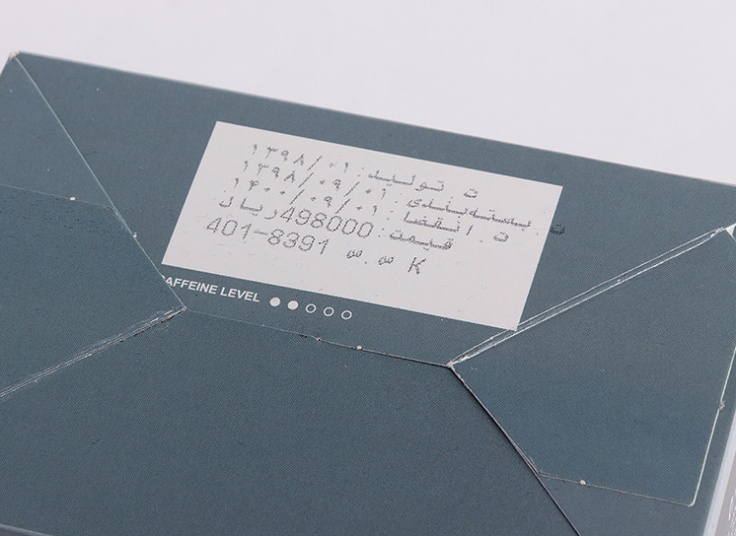 ت تولید: ۱۳۹۸/۰۱
ت. بسته‌بندی: ۱۳۹۸/۰۹/۰۱
ت. انقضا: ۱۴۰۰/۰۹/۰۱
قیمت: 498000ریال
401-8391 س.س K
CAFFEINE LEVEL